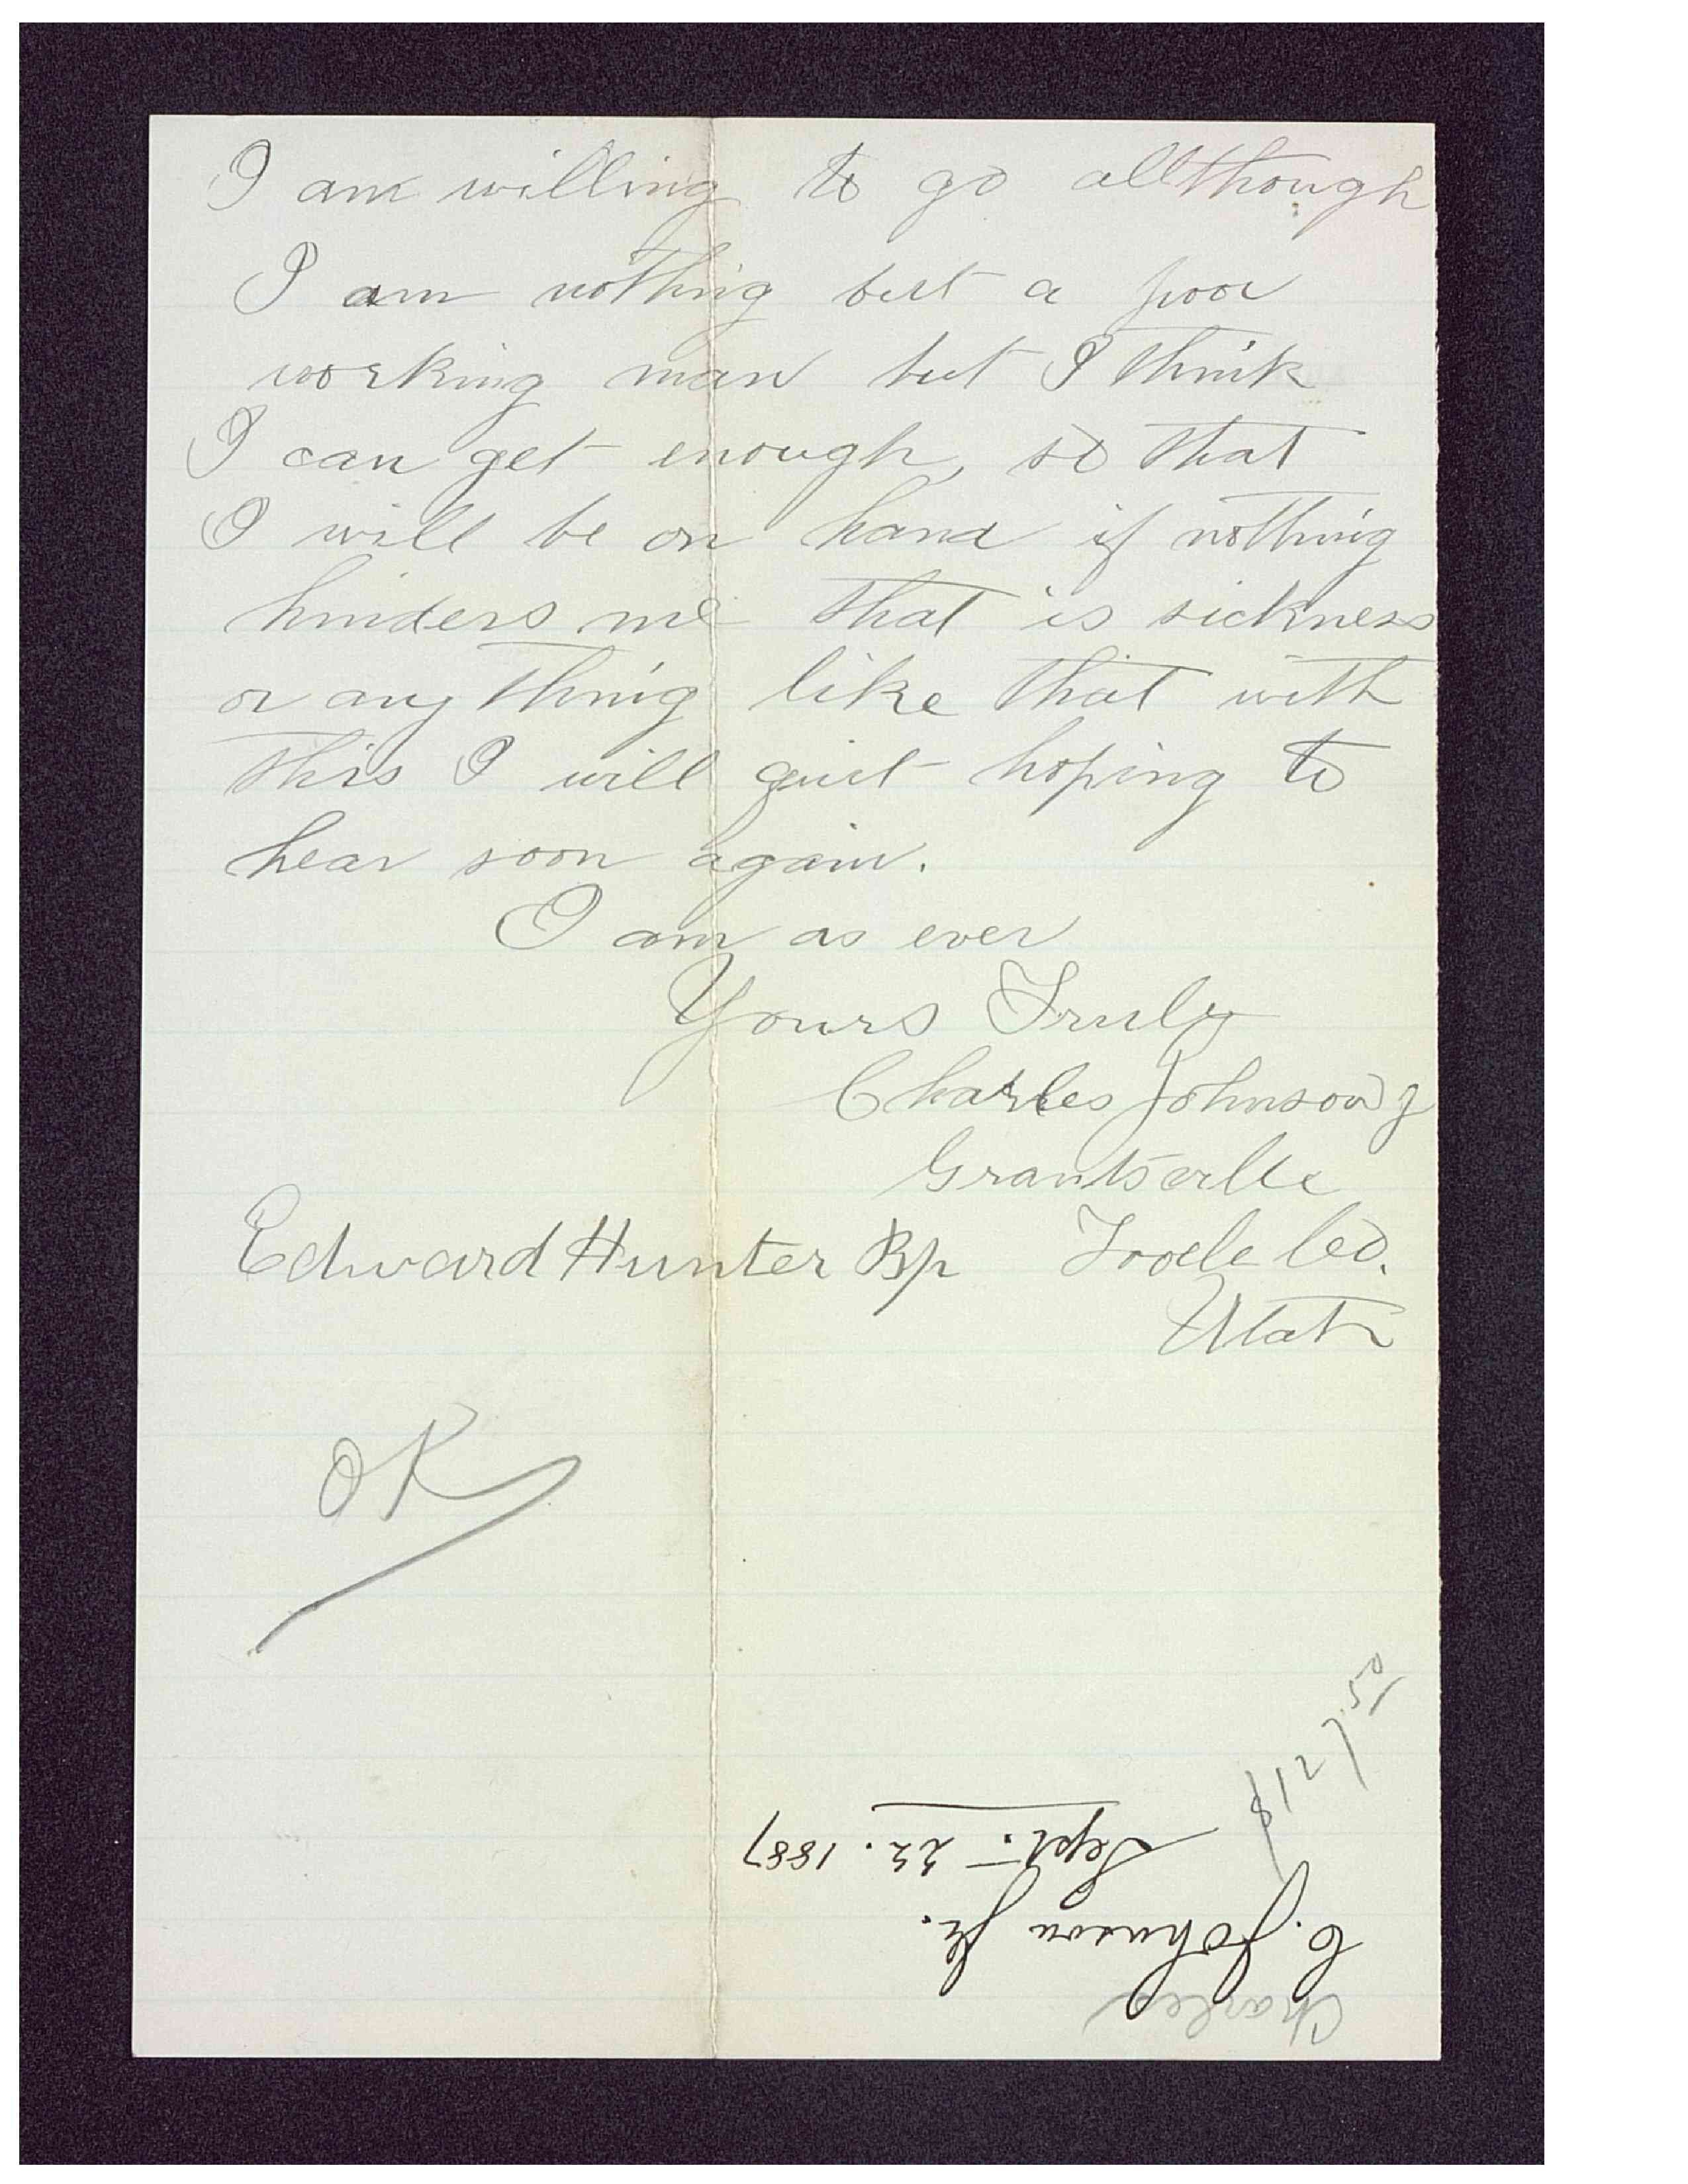 I am willing to go allthough
I am nothing but a poor
working man but I think
I can get enough, so that
I will be on hand if nothing
hinders me that is sickness
or any thing like that with
this I will quit hoping to
hear soon again.
I am as ever
Yours Truly
Charles Johnson J
Grantsville
Edward Hunter Bp Tooele Co.
Utah
OK
Charles
C. Johnson Jr.
Sept. 22. 1887
$127.50